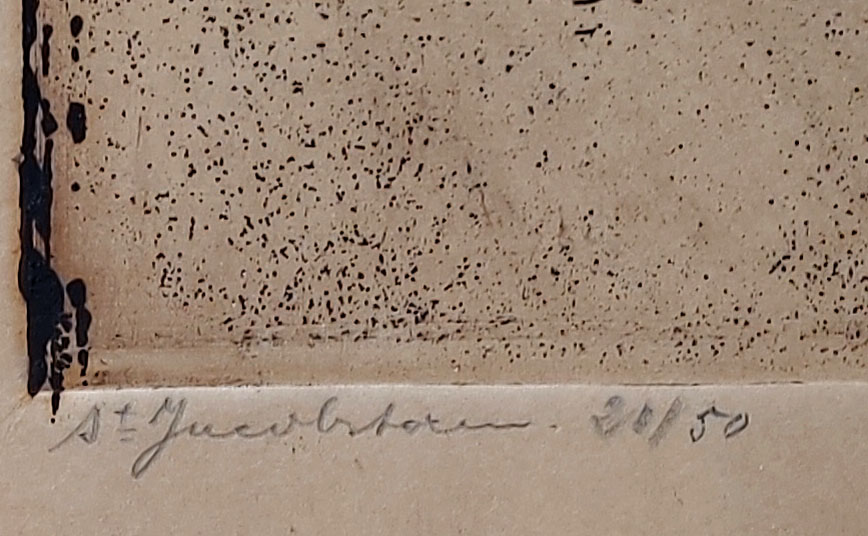 St Jacobstoren. 20/50